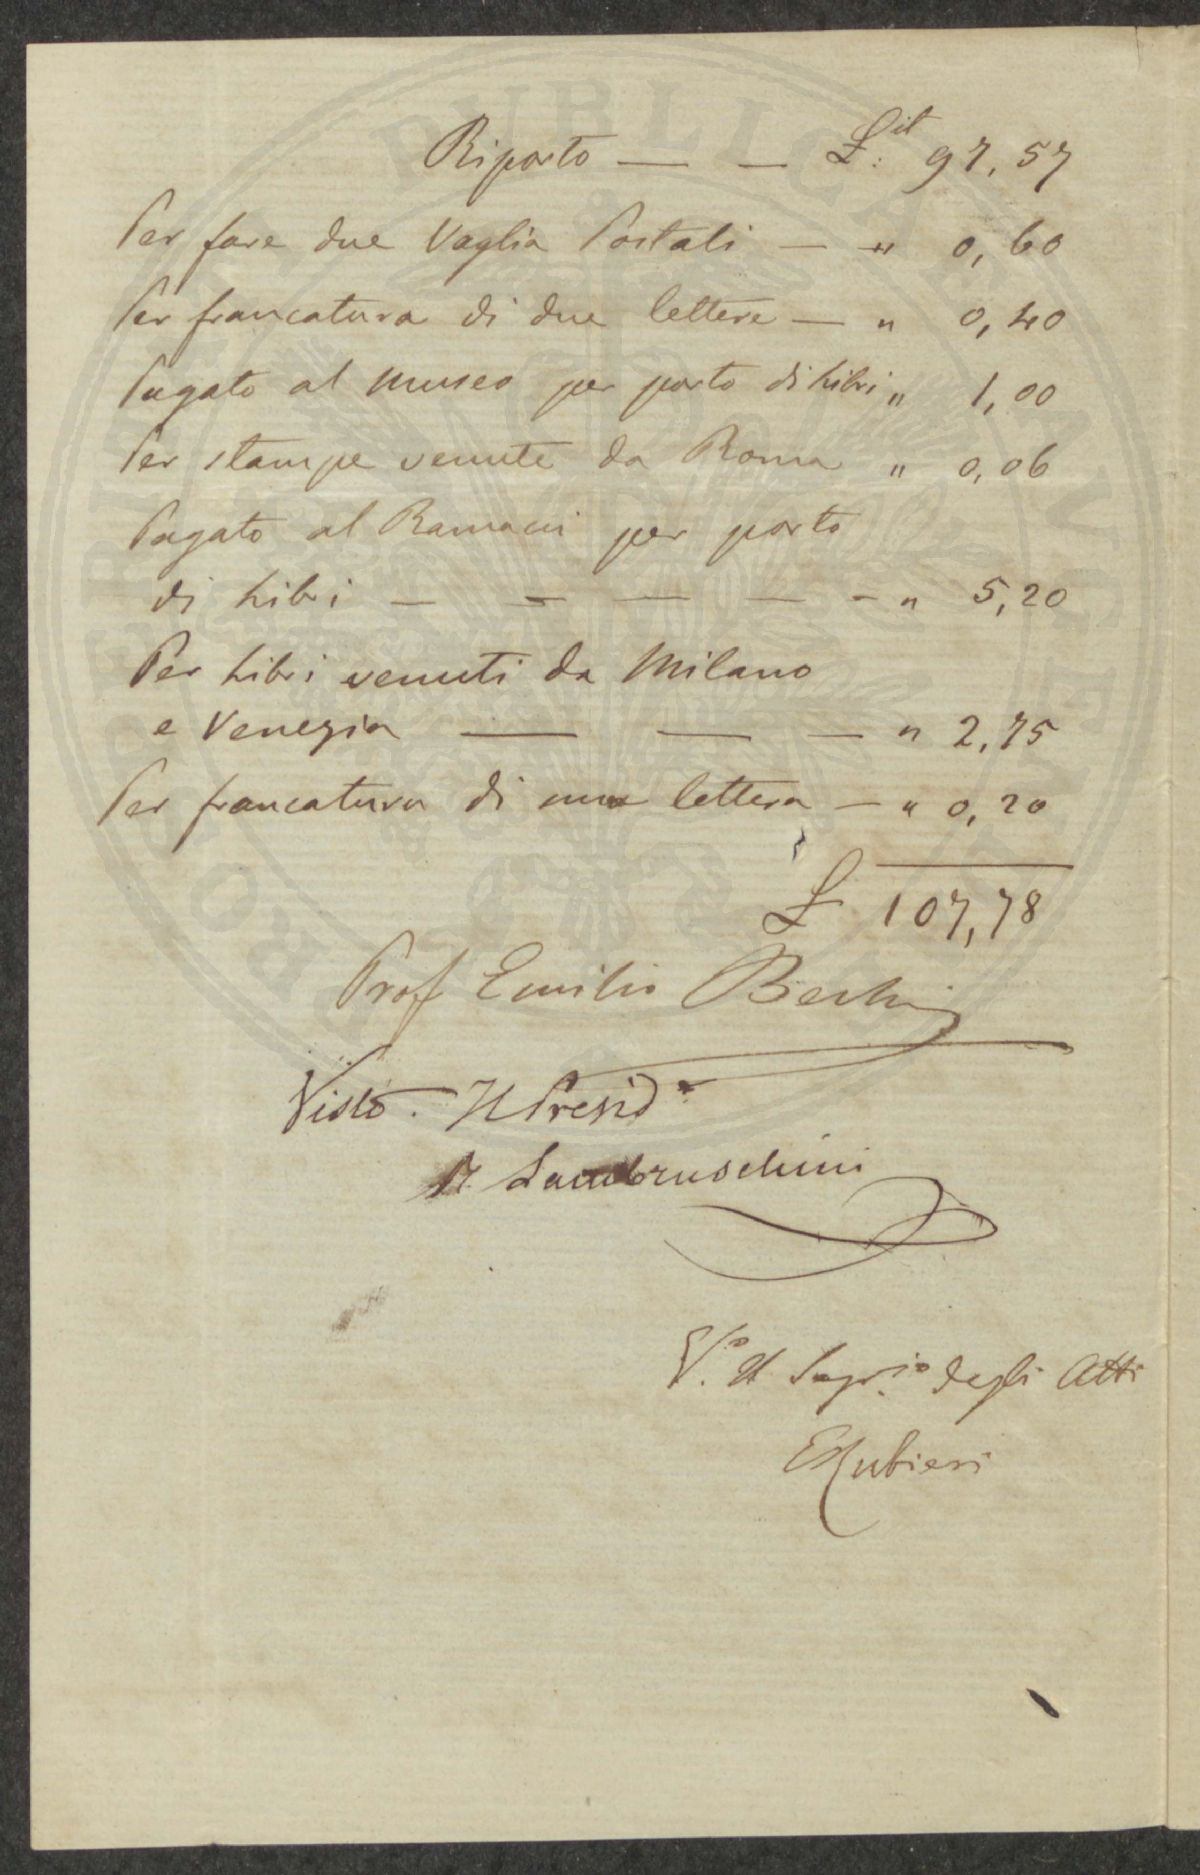 Riporto — — £.it 97,57
Per fare due Vaglia Postali — " 0,60
Per francatura di due lettere — " 0,40
Pagato al Museo per porto di Libri " 1,00
Per stampe venute da Roma " 0,06
Pagato al Ramacci per porto
di Libri — — — — - " 5,20
Per Libri venuti da Milano
e Venezia — — — " 2,75
Per francatura di una lettera — " 0,20
£ 107,78
Prof Emilio Bechi
Visto. Il Presid.e
R. Lambruschini
V.o Il Segr.io degli Atti
E Rubieri